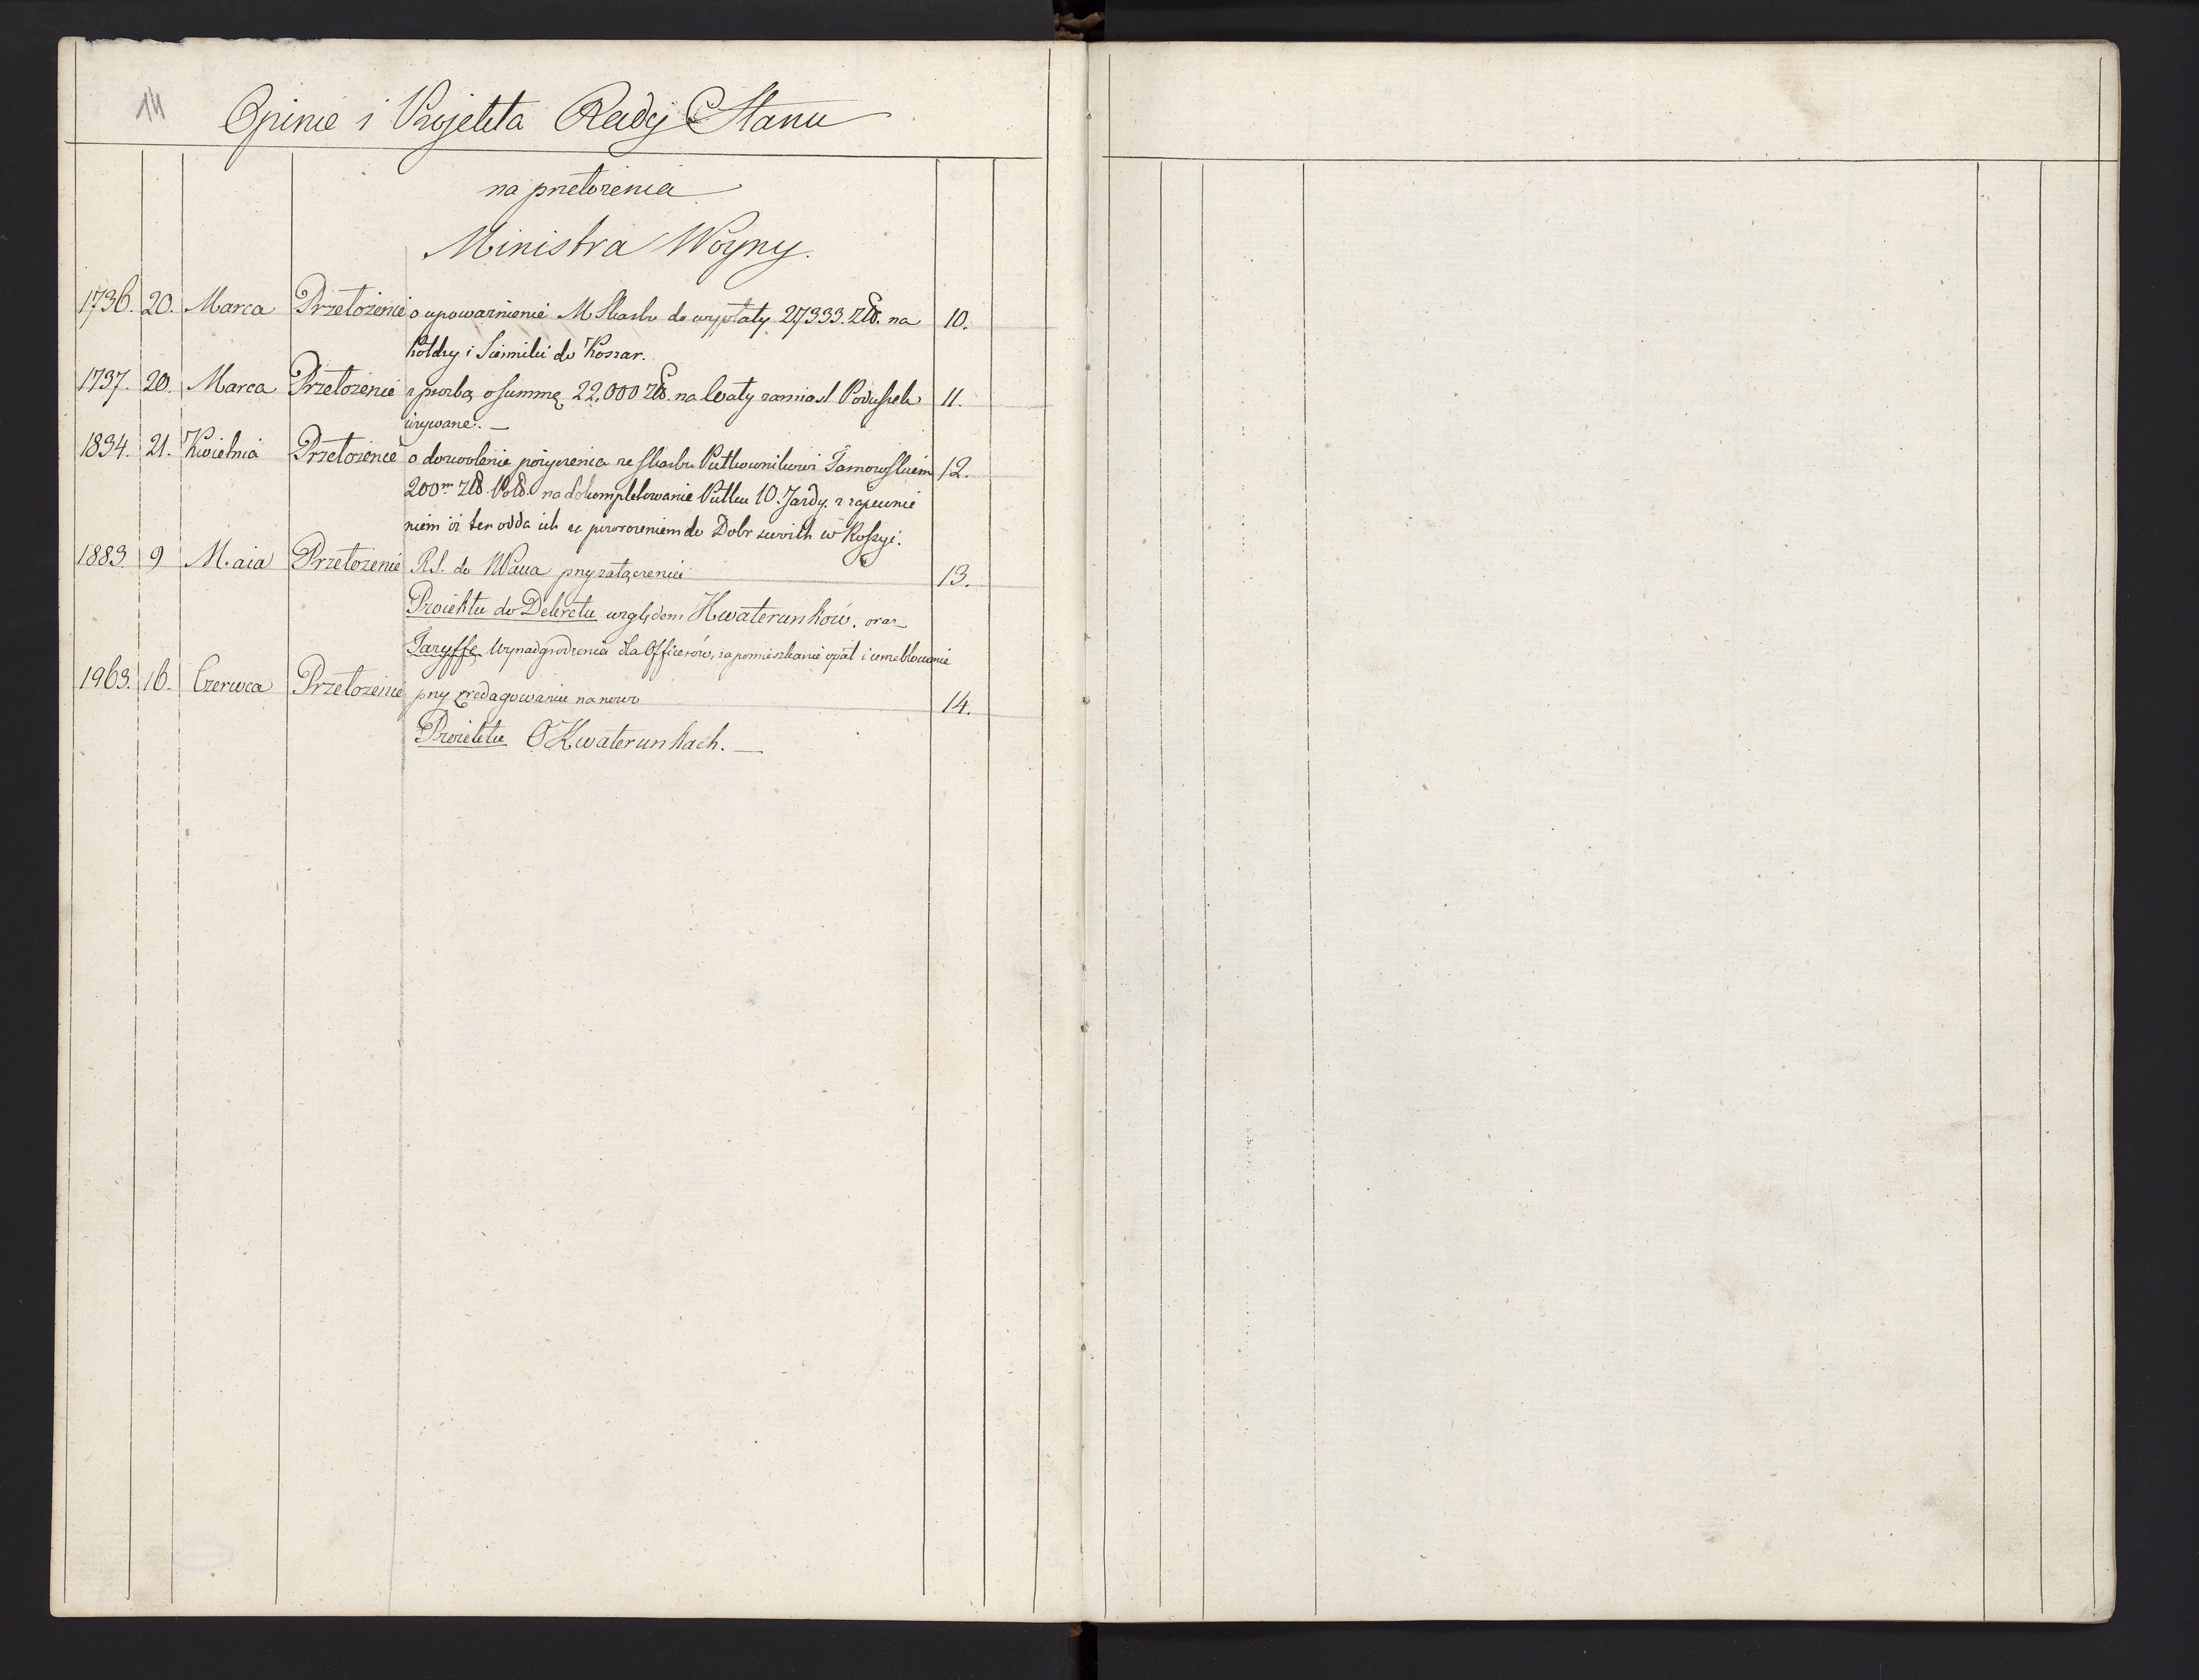 14
Opinie i Projekta Rady Stanu
na przełożenia
Ministra Woyny.
1736. 20. Marca Przełożenie o upoważnienie M Skarbu do wypłaty 27,333. Złł. na 10.
kołdry i Sienniki do Koszar.
1737. 20. Marca Przełożenie z prozbą o summę 22,000 złł. na Waty zamiast Poduszek 11.
używane. —
1834. 21. Kwietnia Przełożenie o dozwolenie pożyczenia ze Skarbu Pułkownikowi Tarnowskiem 12.
200m złł. Poll. na dokompletowanie Pułku 10. Jazdy. z zapewnie
niem iż ten odda ich za powroceniem do Dobr swoich w Rossyi.
1883. 9 Maia Przełożenie R.S. do NPana przyzałączeniu 13.
Proiektu do Dekretu względem Kwaterunków. oraz
Taryffę Wynadgrodzenia dla Officerów, za pomieszkanie opał i umeblowanie
1963. 16. Czerwca Przełożenie przy zredagowaniu nanowo 14.
Proiektu O Kwaterunkach. —